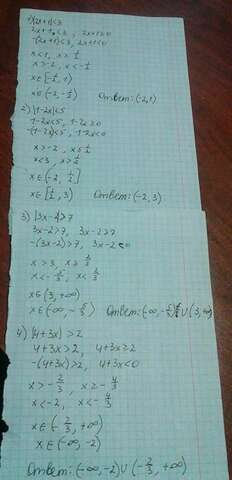 1) |2x+1|<3
2x+1<3, 2x+1≥0
-(2x+1)<3, 2x+1<0
x<1, x≥-1/2
x>-2, x<-1/2
x∈[-1/2, 1)
x∈(-2, -1/2)
Ответ: (-2, 1)
2) |1-2x|<5
1-2x<5, 1-2x≥0
-(1-2x)<5, 1-2x<0
x>-2, x≤1/2
x<3, x>1/2
x∈(-2, 1/2]
x∈[1/2, 3)
Ответ: (-2, 3)
3) |3x-2|>7
3x-2>7, 3x-2≥7
-(3x-2)>7, 3x-2<0
x>3, x≥2/3
x<-5/3, x<2/3
x∈(3, +∞)
x∈(-∞, -5/3)
Ответ: (-∞, -5/3) ∪ (3, +∞)
4) |4+3x|>2
4+3x>2, 4+3x≥2
-(4+3x)>2, 4+3x<0
x>-2/3, x≥-4/3
x<-2, x<-4/3
x∈(-2/3, +∞)
x∈(-∞, -2)
Ответ: (-∞, -2) ∪ (-2/3, +∞)